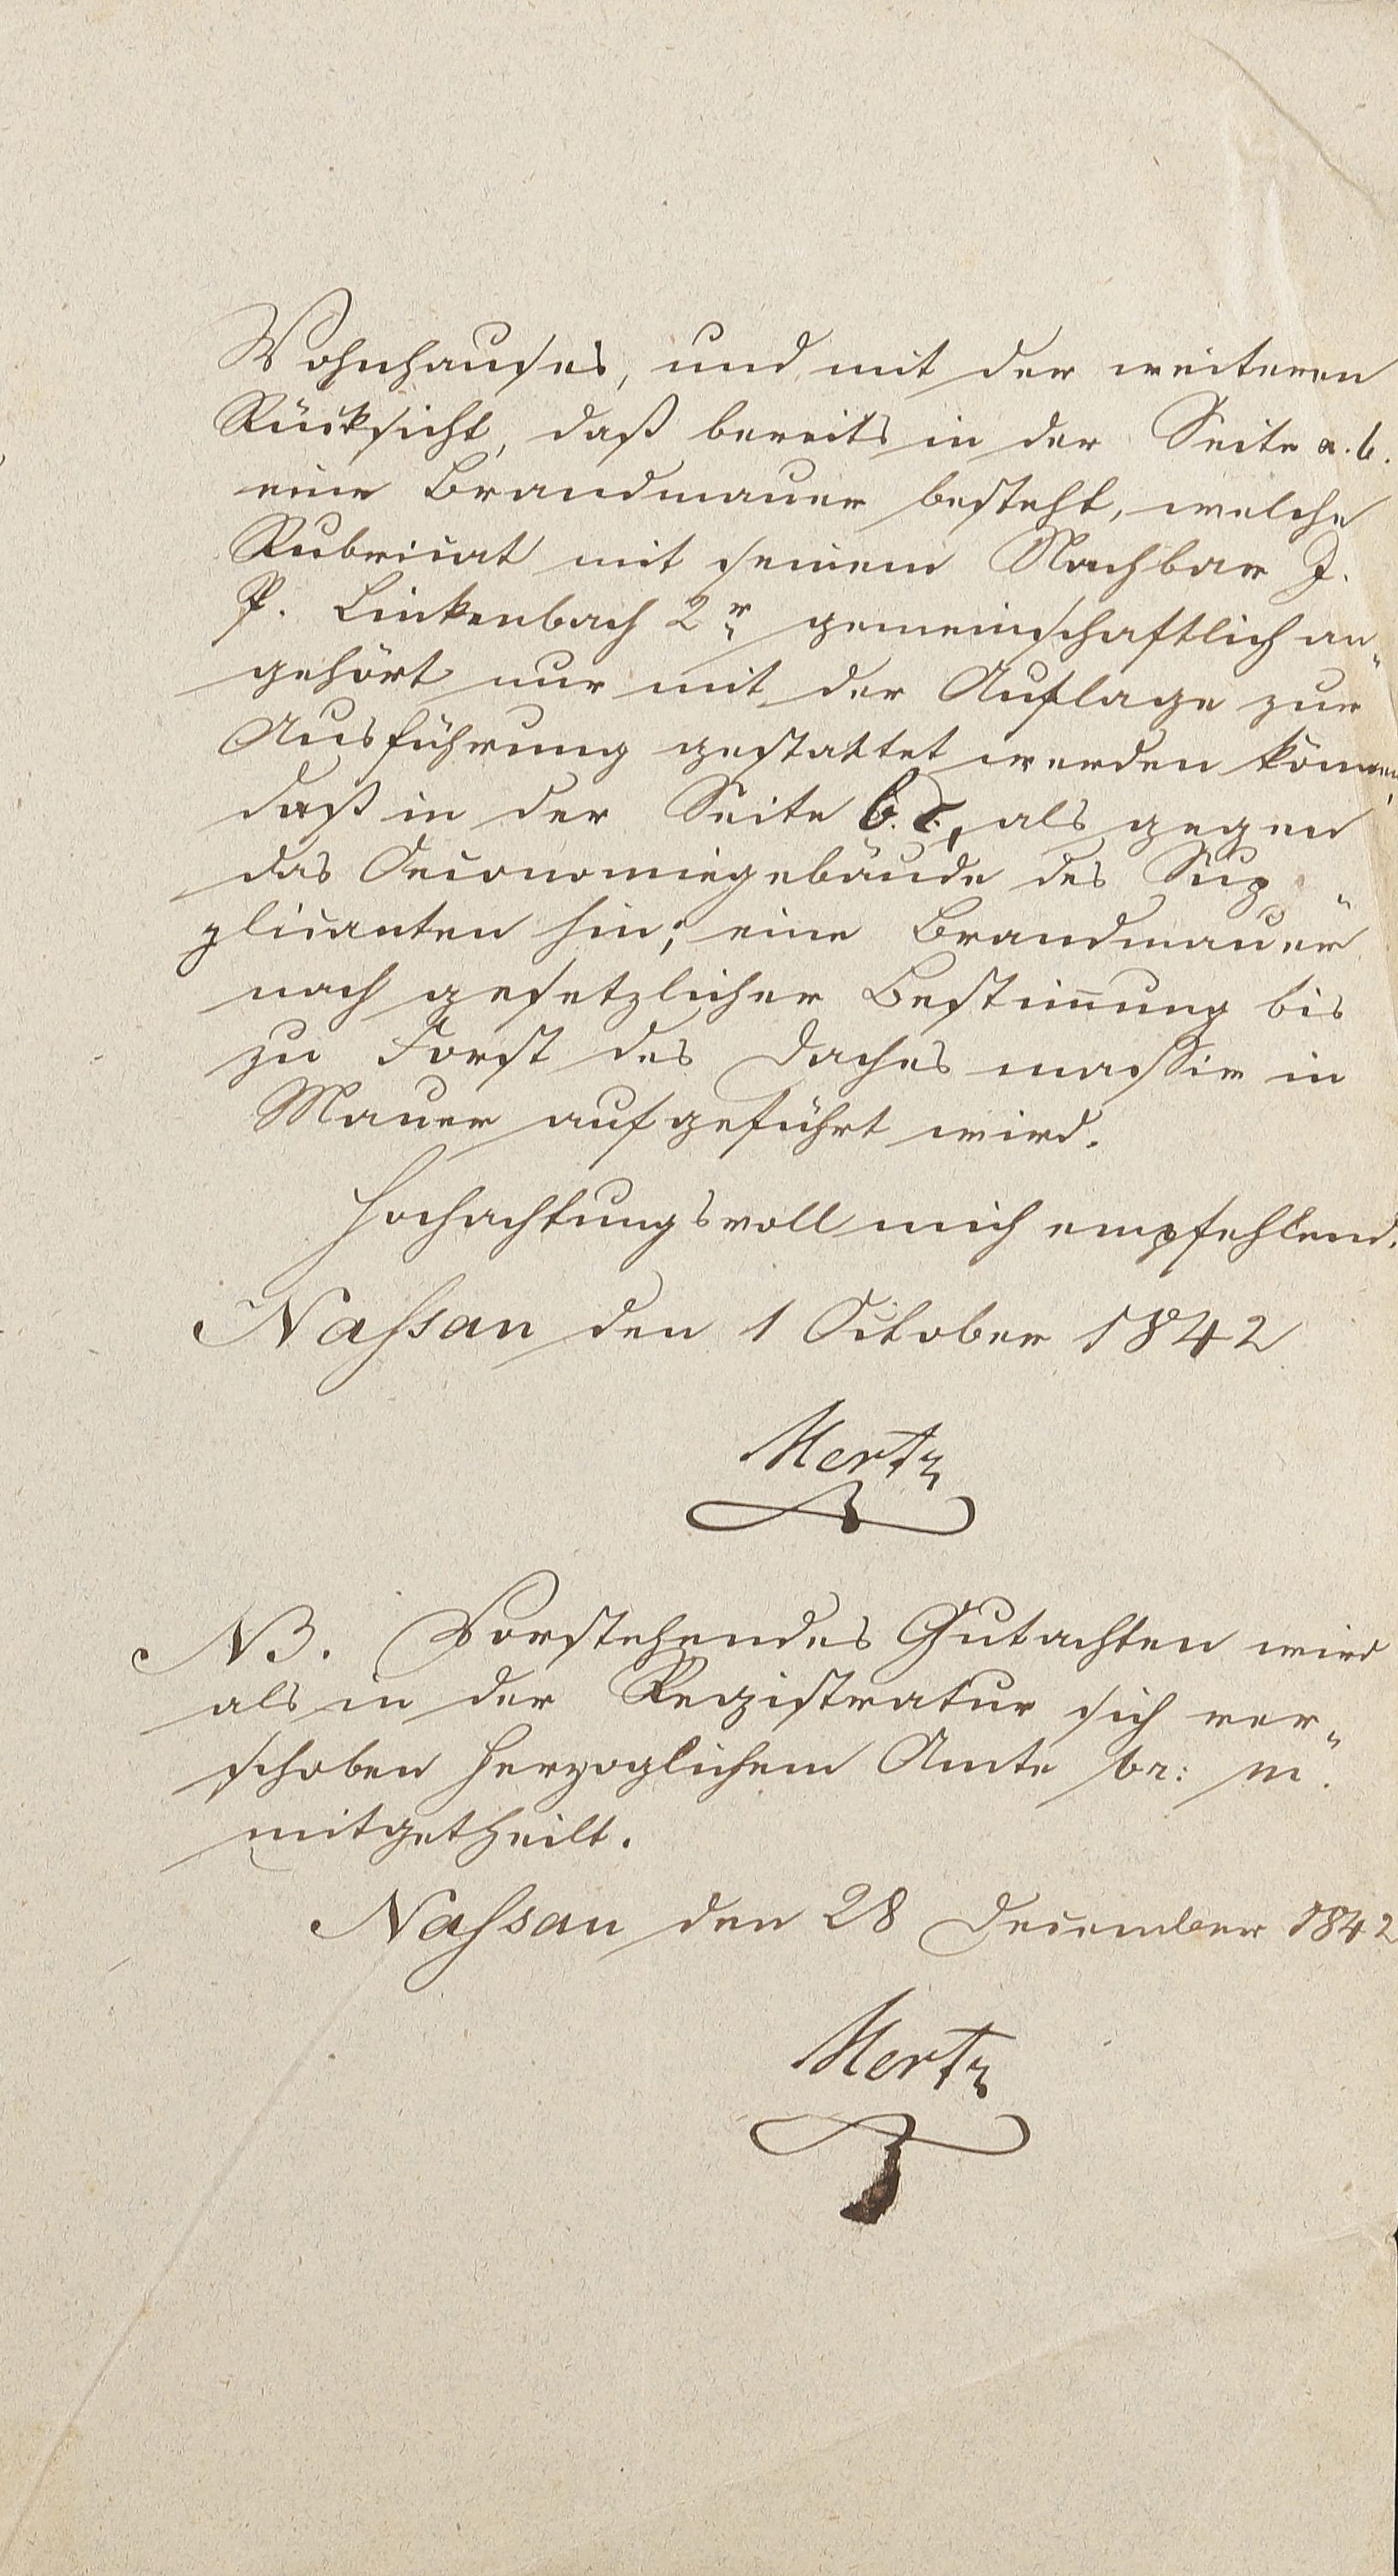 Wohnhauses, und mit der weiteren
Rücksicht, daß bereits in der Seite a. b.
eine Brandmauer besteht, welche
Rubricat mit seinem Nachbar J.
P. Linkenbach 2r gemeinschaftlich an„
gehört nur mit der Auflage zur
Ausführung gestattet werden können,
daß in der Seite b. c., als gegen
das Oeconomiegebäude des Sup„
plicanten hin; eine Brandmauer
nach gesetzlicher Bestim̄ung bis
zu Forst des Daches massiv in
Mauer aufgeführt wird.
Hochachtungsvoll mich empfehlend.
Nassau den 1 October 1842
Mertz
NB. Vorstehendes Gutachten wird
als in der Registratur sich ver„
schoben Herzoglichem Amte br: m.
mitgetheilt.
Nassau den 28 December 1842
Mertz